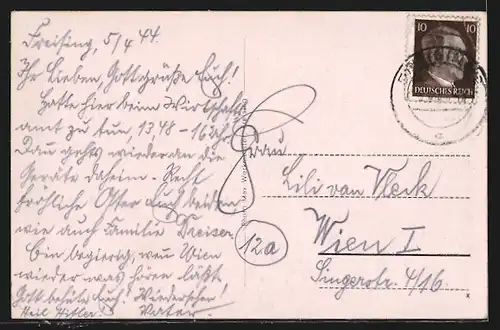 Freising, 5/4 44.
Ihr Lieben, Gott grüße Euch!
Hatte hier beim Wirtschafts-
amt zu tun, 1348 - 16
Dan gehts wieder an die
Geräte daheim. - Recht
fröhliche Oster Euch beiden
wie auch Familie Dreiser
Bin begierig, wenn Wien
wieder was hören läßt.
Gott behüte Euch! Wiedersehen!
Heil Hitler Vater.
10 10
DEUTSCHES REICH
Frau
Lili van Vleck
Wien I
Singerstr. 4/16
12a
x